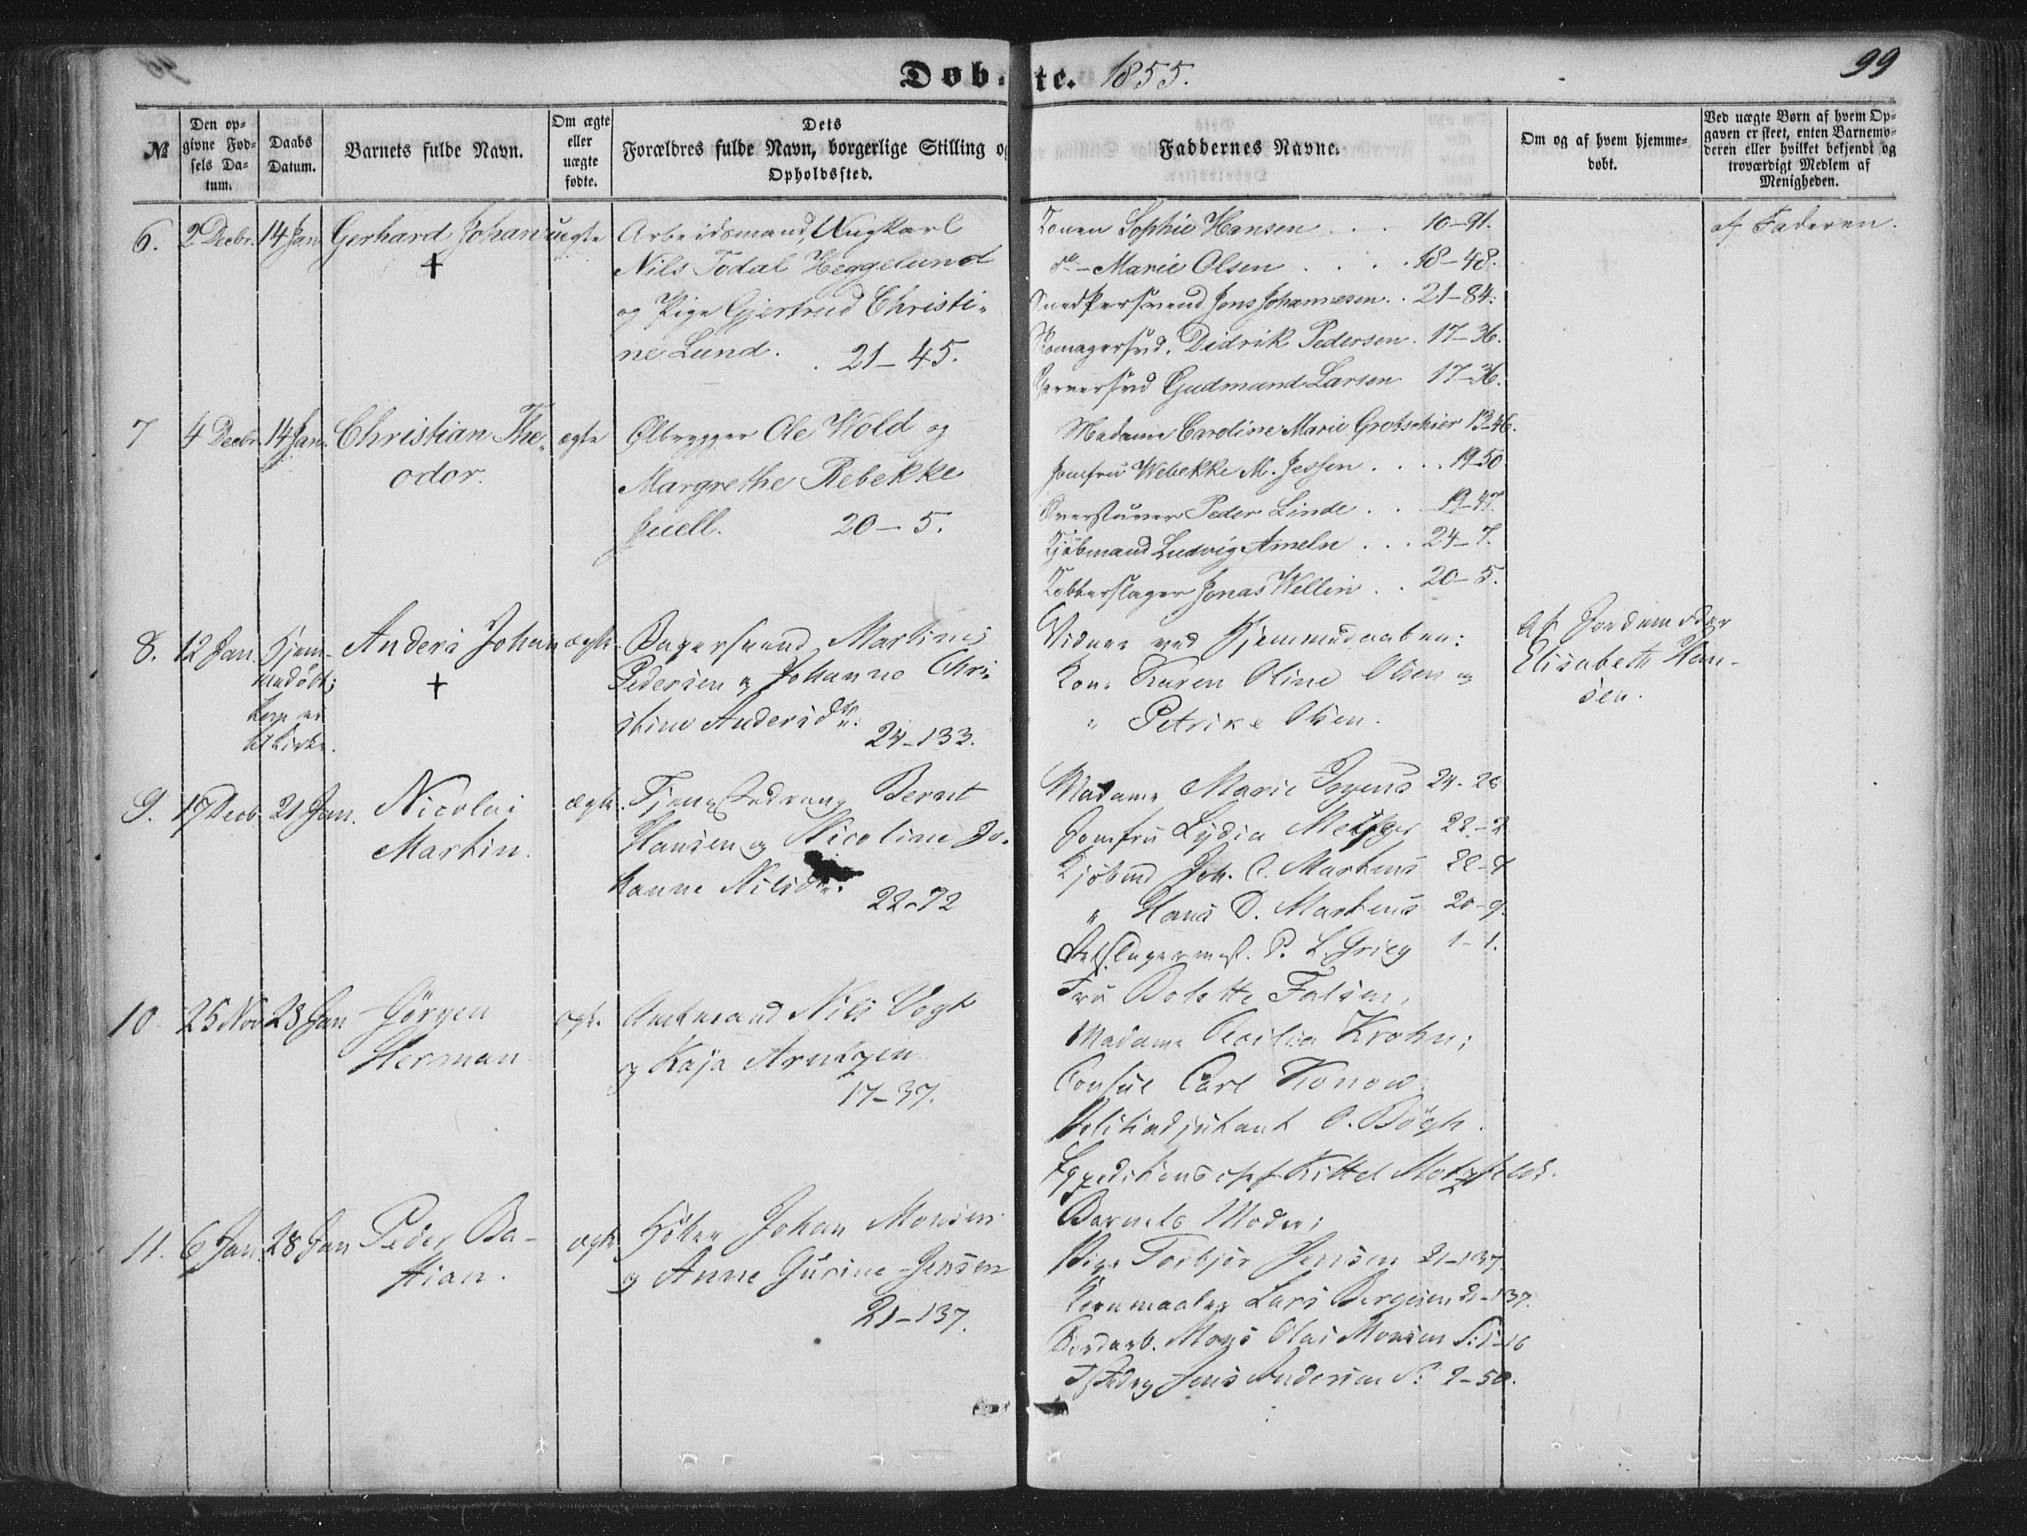 Døbte. 1855.
99
№
Den opgivne Fødsels Datum.
Daabs Datum.
Barnets fulde Navn.
Om ægte eller uægte fødte.
Dets Forældres fulde Navn, borgerlige Stilling og Opholdssted.
Faddernes Navne.
Om og af hvem hjemmedøbt.
Ved uægte Børn af hvem Opgaven er skeet, enten Barnemoderen eller hvilket bekjendt og troværdigt Medlem af Menigheden.
6. 2 Decbr. 14 Jan Gerhard Johan uægte
+
Arbeidsmand, Ungkarl
Nils Todal Heggelund
og Pige Gjertrud Christi-
ne Lund. 21-45.
Konen Sophie Hansen . . . 10-91.
do - Marie Olsen . . . . 18-48.
Snedkersvend Jens Johannesen . . 21-84.
Pedersen . 17-36.
Gudmund Larsen 17-36.
af Faderen.
7 4 Decbr. 14 Jan. Christian The-
odor.
ægte
Ølbrygger Ole Wold og
Margrethe Rebekke
Juell. 20-5.
Madame Caroline Marie Grotschier 13-46.
Jomfru Webekke M. Jessen . . . . 19-50
Peder Linde . . . 19-47.
Kjøbmand Ludvig Ameln . . . 24-7.
Kobberslager Jonas Wellin . . 20-5.
8. 12 Jan. Hjem-
medøbt;
til Kirke.
Anders Johan
+
ægte
Bagersvend Martinus
Pedersen og Johanne Chri-
stine Andersdtr. 24-133.
Vidner ved Hjemmedaaben:
Kone Karen Oline Olsen og
" Petrike Olsen.
af Jordemoder
Elisabeth Han-
sen.
9. 17 Decb. 21 Jan. Nicolai
Martin.
ægte.
Tjenestedreng Bernt
Hansen og Nicoline Jo-
hanne Nilsdtr. 22-72
Madame Marie 24-26
Jomfru Lydia 22-2
Kjøbmd Joh. C. Martens 22-7
" Hans D. Martens 20-9.
P. L. Grieg 1-1.
10. 25 Nov 23 Jan Jörgen
Herman
ægte.
Amtmand Nils Vogt
og Kaja Arntzen
17-37.
Fru Bolette Falsen,
Madame Cecilia Krohn;
Consul Carl Konow.
Politiadjutant O. Bögh.
Expeditionschef Kittel Motzfeldt.
11. 6 Jan. 28 Jan Peder Ba-
stian.
ægte
Høker Johan Monsen
og Anne Gurine Jensen
21-137.
Barnets Moder;
Pige Torbjör Jensen 21-137
Kornmaaler Lars Børgesen 21-137.
Mons Olai Monsen S: 1-16
Jens Andersen S: 2-50.